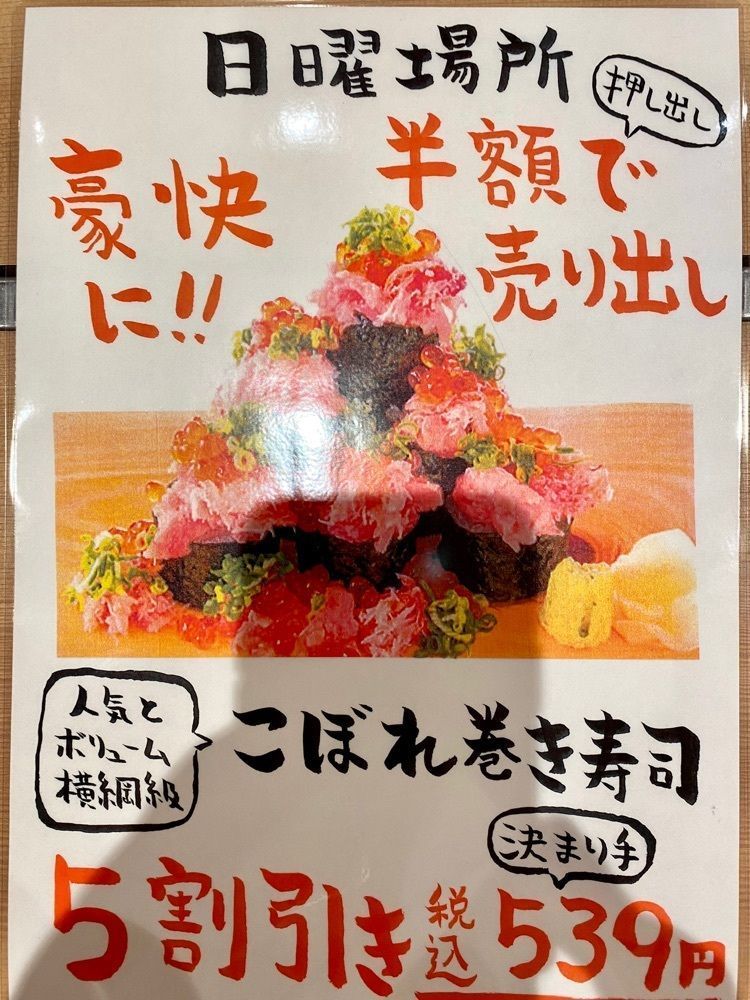 日曜場所
押し出し
豪快
に!!
半額で
売り出し
人気と
ボリューム
横綱級
こぼれ巻き寿司
決まり手
5割引き
税込
539円